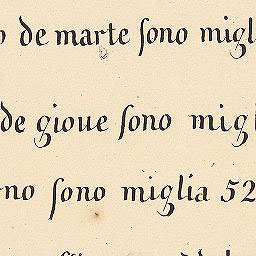 de marte ſono migl
de gioue ſono migl
no ſono miglia 52